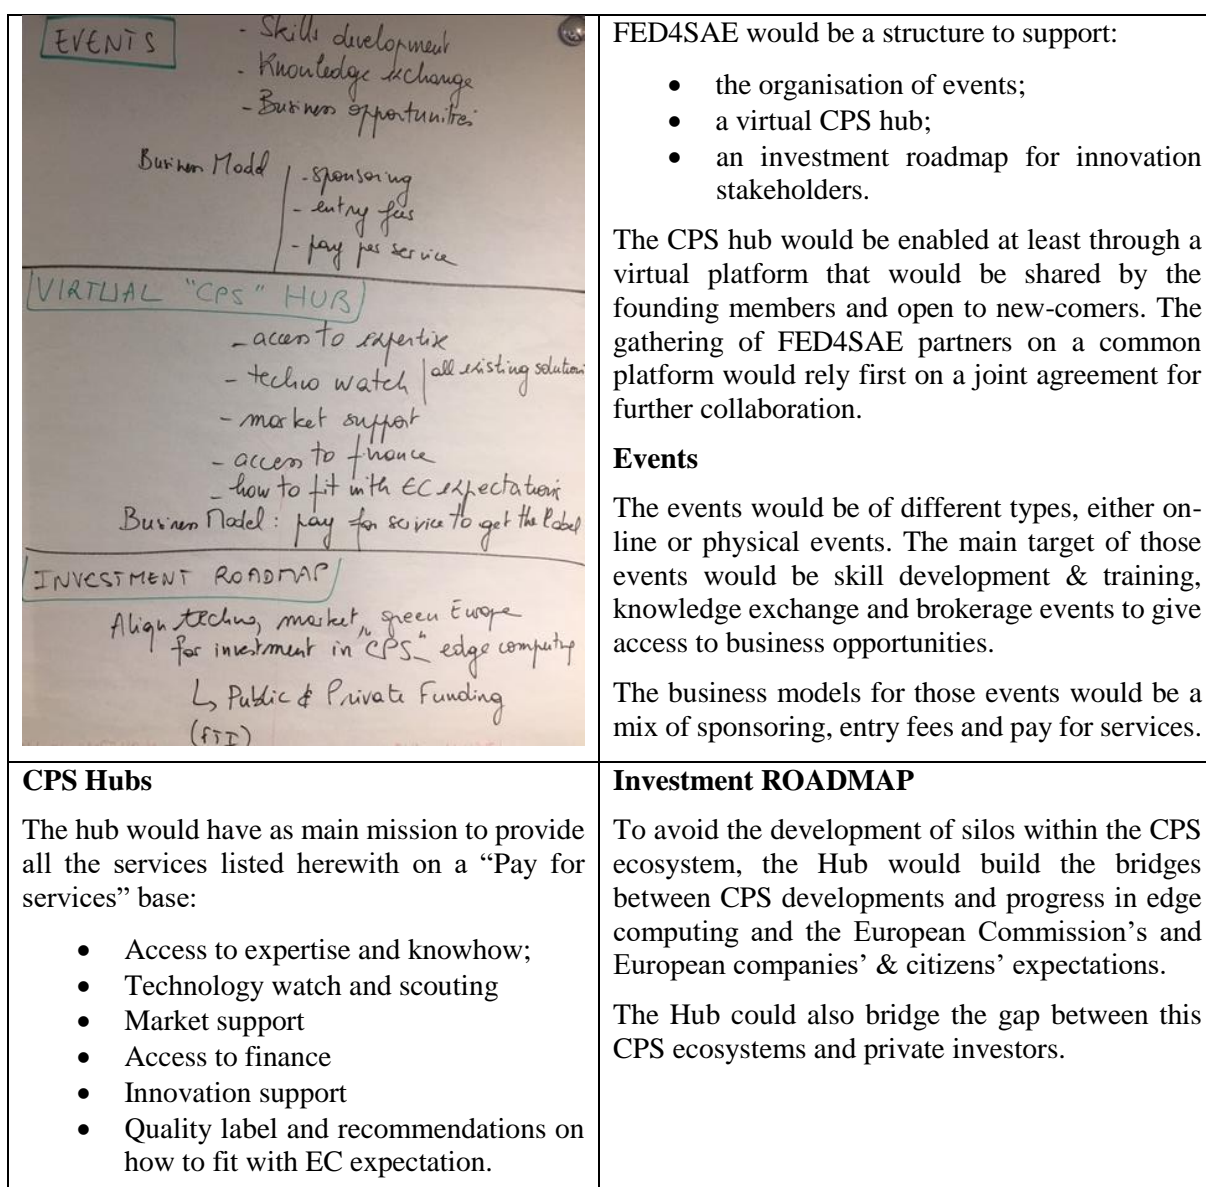 EVENTS
- Skills development
- Knowledge exchange
- Business opportunities
Business Model
- sponsoring
- entry fees
- pay per service
VIRTUAL "CPS" HUB
- access to expertise
- techno watch | all existing solutions
- market support
- access to finance
- how to fit with EC expectations
Business Model : pay for service to get the label
INVESTMENT ROADMAP
Align techno, market, green Europe
for investment in "CPS" edge computing
↳ Public & Private Funding
(FTI)
FED4SAE would be a structure to support:
• the organisation of events;
• a virtual CPS hub;
• an investment roadmap for innovation
stakeholders.
The CPS hub would be enabled at least through a
virtual platform that would be shared by the
founding members and open to new-comers. The
gathering of FED4SAE partners on a common
platform would rely first on a joint agreement for
further collaboration.
Events
The events would be of different types, either on-
line or physical events. The main target of those
events would be skill development & training,
knowledge exchange and brokerage events to give
access to business opportunities.
The business models for those events would be a
mix of sponsoring, entry fees and pay for services.
CPS Hubs
The hub would have as main mission to provide
all the services listed herewith on a “Pay for
services” base:
• Access to expertise and knowhow;
• Technology watch and scouting
• Market support
• Access to finance
• Innovation support
• Quality label and recommendations on
how to fit with EC expectation.
Investment ROADMAP
To avoid the development of silos within the CPS
ecosystem, the Hub would build the bridges
between CPS developments and progress in edge
computing and the European Commission’s and
European companies’ & citizens’ expectations.
The Hub could also bridge the gap between this
CPS ecosystems and private investors.